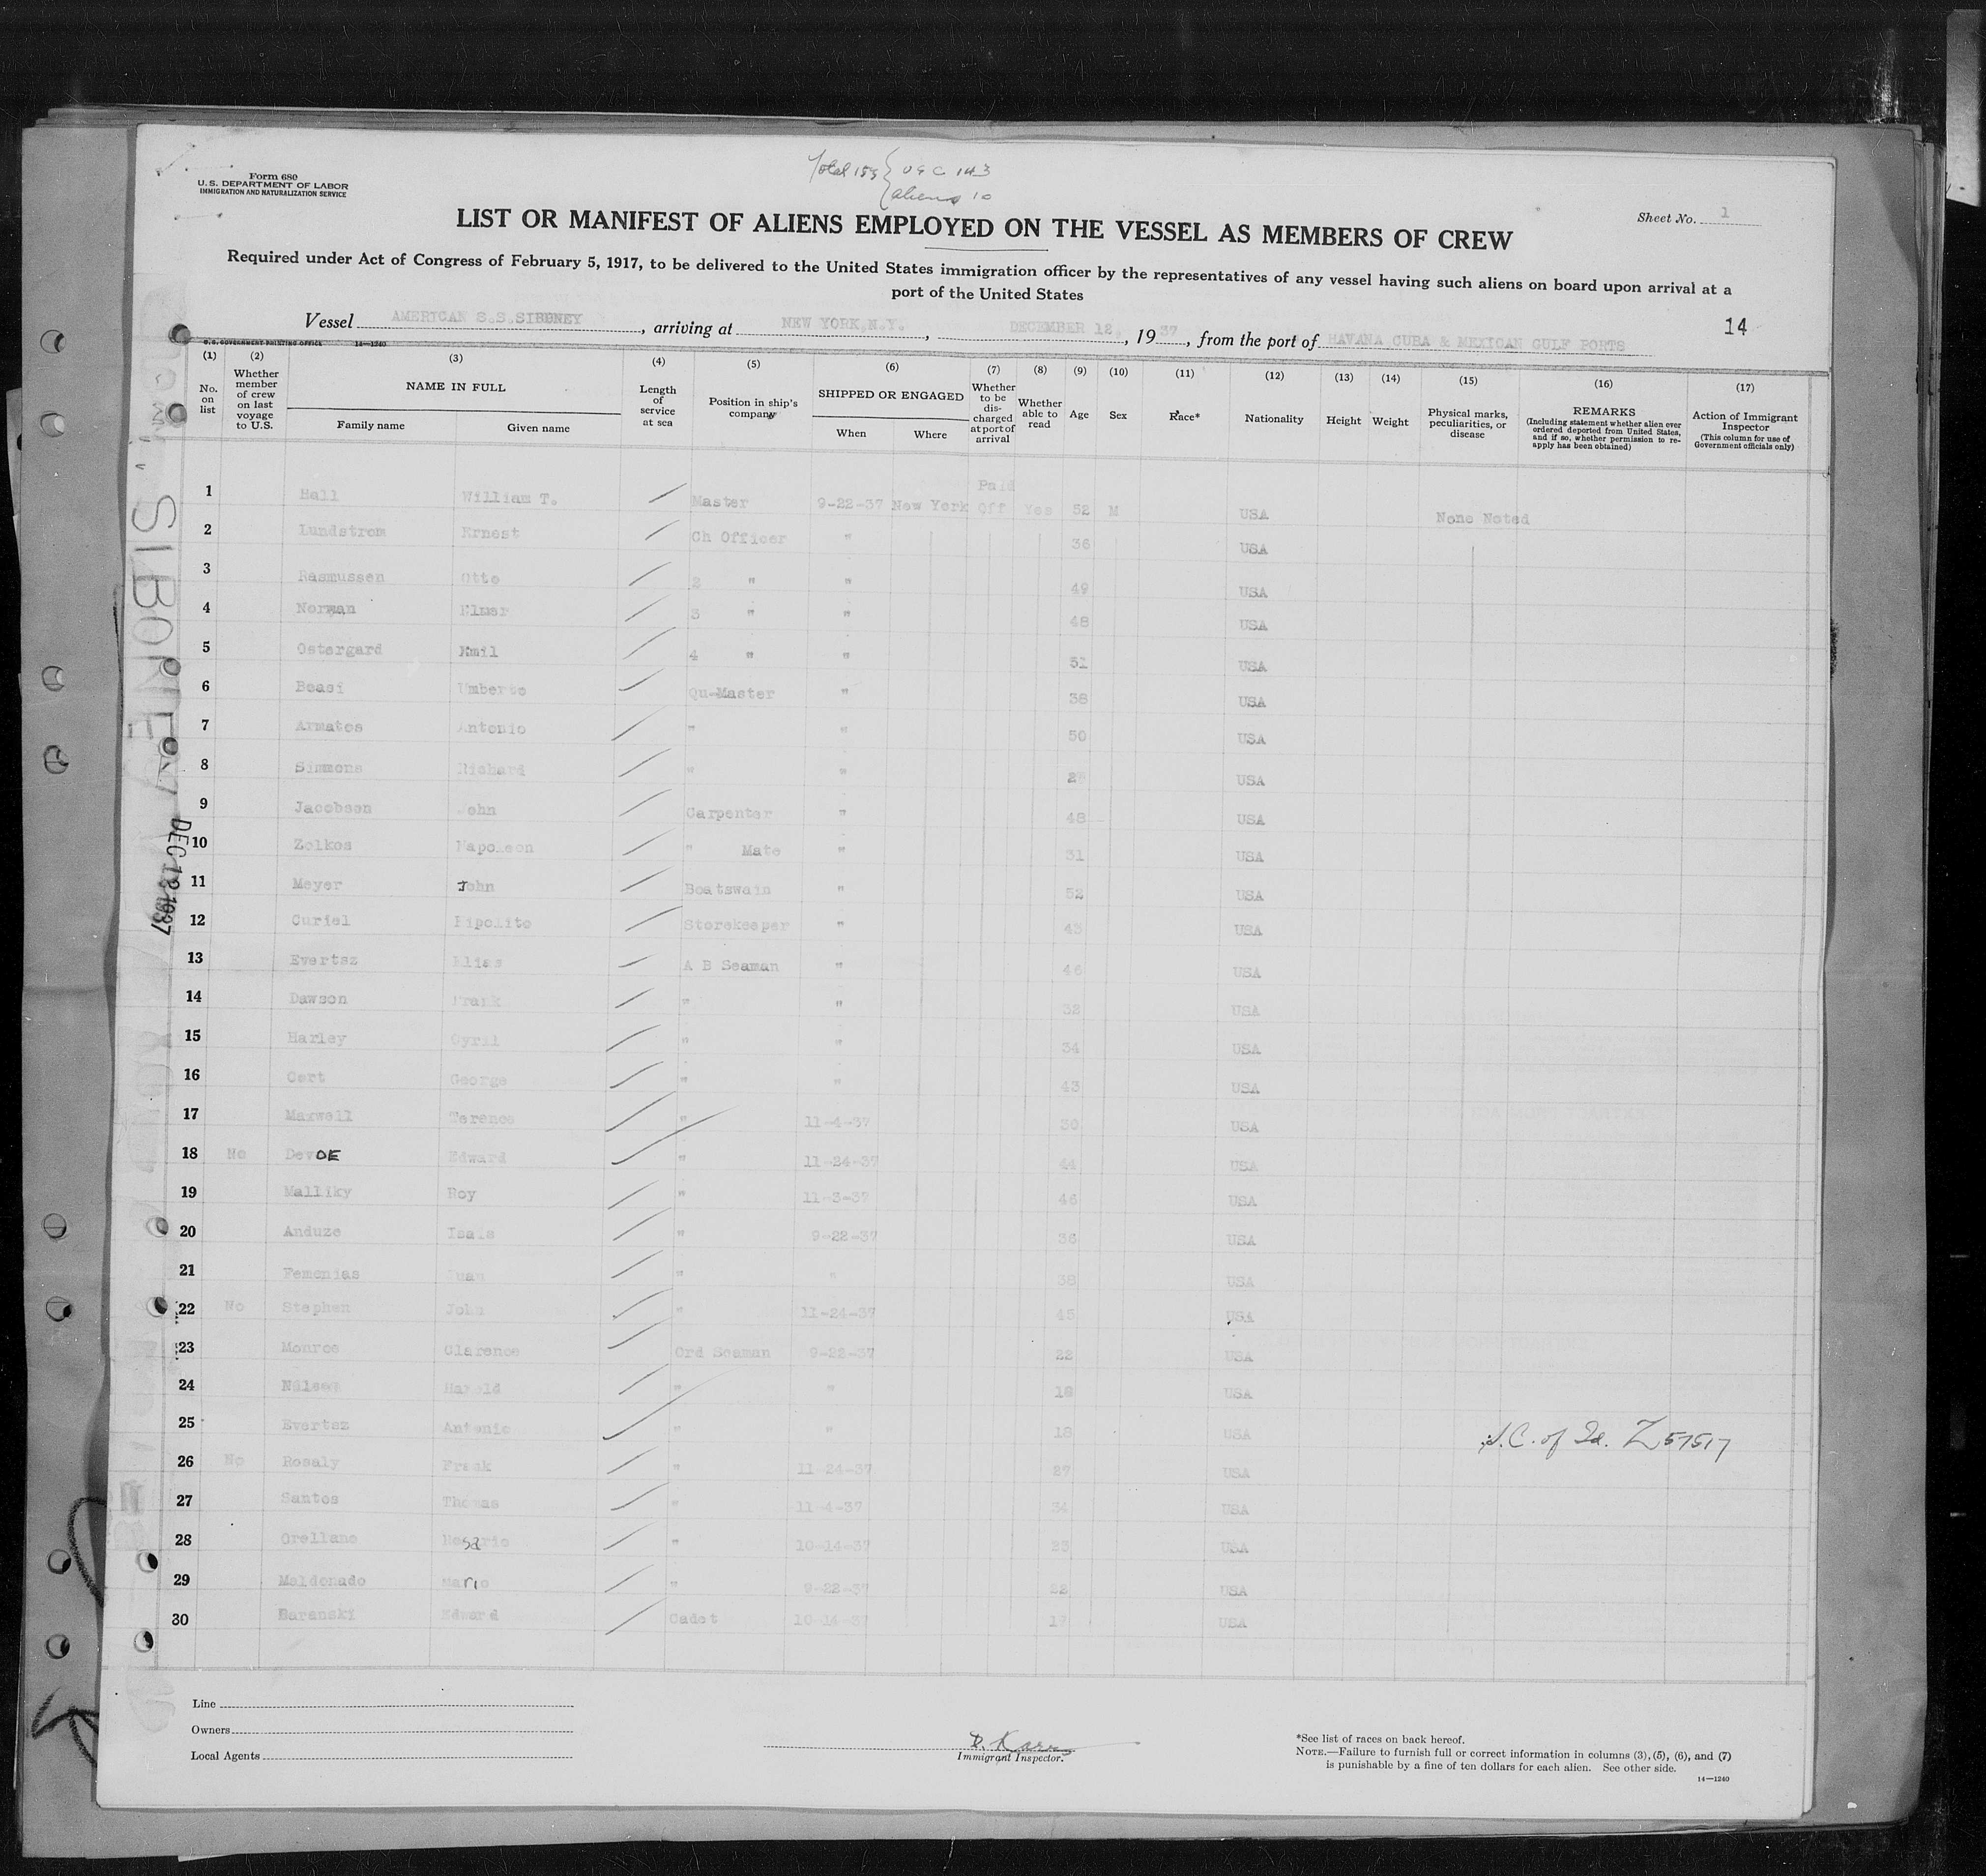 Form 680
U. S. DEPARTMENT OF LABOR
IMMIGRATION AND NATURALIZATION SERVICE
Total 153 { USC 143
aliens 10
Sheet No. 1
LIST OR MANIFEST OF ALIENS EMPLOYED ON THE VESSEL AS MEMBERS OF CREW
Required under Act of Congress of February 5, 1917, to be delivered to the United States immigration officer by the representatives of any vessel having such aliens on board upon arrival at a
port of the United States
Vessel AMERICAN S.S.SIBONEY, arriving at NEW YORK,N.Y., DECEMBER 12, 1937, from the port of HAVANA CUBA & MEXICAN GULF PORTS
14
U.S. GOVERNMENT PRINTING OFFICE 14—1240
(1) No. on list
(2) Whether member of crew on last voyage to U.S.
(3) NAME IN FULL Family name Given name
(4) Length of service at sea
(5) Position in ship's company
(6) SHIPPED OR ENGAGED When Where
(7) Whether to be discharged at port of arrival
(8) Whether able to read
(9) Age
(10) Sex
(11) Race*
(12) Nationality
(13) Height
(14) Weight
(15) Physical marks, peculiarities, or disease
(16) REMARKS (Including statement whether alien ever ordered deported from United States, and if so, whether permission to reapply has been obtained)
(17) Action of Immigrant Inspector (This column for use of Government officials only)
1 Hall William T. Master 9-22-37 New York Paid Off Yes 52 M USA None Noted
2 Lundstrom Ernest Ch Officer " 36 USA
3 Rasmussen Otto 2 " " 49 USA
4 Norman Elmer 3 " " 48 USA
5 Ostergard Emil 4 " " 51 USA
6 Beasi Umberto Qu-Master " 38 USA
7 Armatos Antonio " " 50 USA
8 Simmons Richard " " USA
9 Jacobsen John Carpenter " 48 USA
10 Zolkos Napoleon " Mate " 31 USA
11 Meyer John Boatswain " 52 USA
12 Curiel Hipolito Storekeeper " 43 USA
13 Evertsz Elias A B Seaman " 46 USA
14 Dawson Frank " " 32 USA
15 Harley Cyril " " 34 USA
16 Cort George " " 43 USA
17 Maxwell Terence " 11-4-37 30 USA
18 No DevOE Edward " 11-24-37 44 USA
19 Malliky Roy " 11-3-37 46 USA
20 Anduze Isais " 9-22-37 36 USA
21 Femenias Juan " " 38 USA
22 No Stephen John " 11-24-37 45 USA
23 Monroe Clarence Ord Seaman 9-22-37 22 USA
24 Nilsen Harold " " 18 USA
25 Evertsz Antonio " " 18 USA S.C. of Id. Z 57517
26 No Rosaly Frank " 11-24-37 27 USA
27 Santos Thomas " 11-4-37 34 USA
28 Orellano Rosario " 10-14-37 23 USA
29 Maldonado Mario " 9-22-37 22 USA
30 Baranski Edward Cadet 10-14-37 USA
SIBONEY
DEC 12 1937
Line
Owners
Local Agents
D. Karr
Immigrant Inspector.
*See list of races on back hereof.
NOTE.—Failure to furnish full or correct information in columns (3), (5), (6), and (7)
is punishable by a fine of ten dollars for each alien. See other side.
14—1240